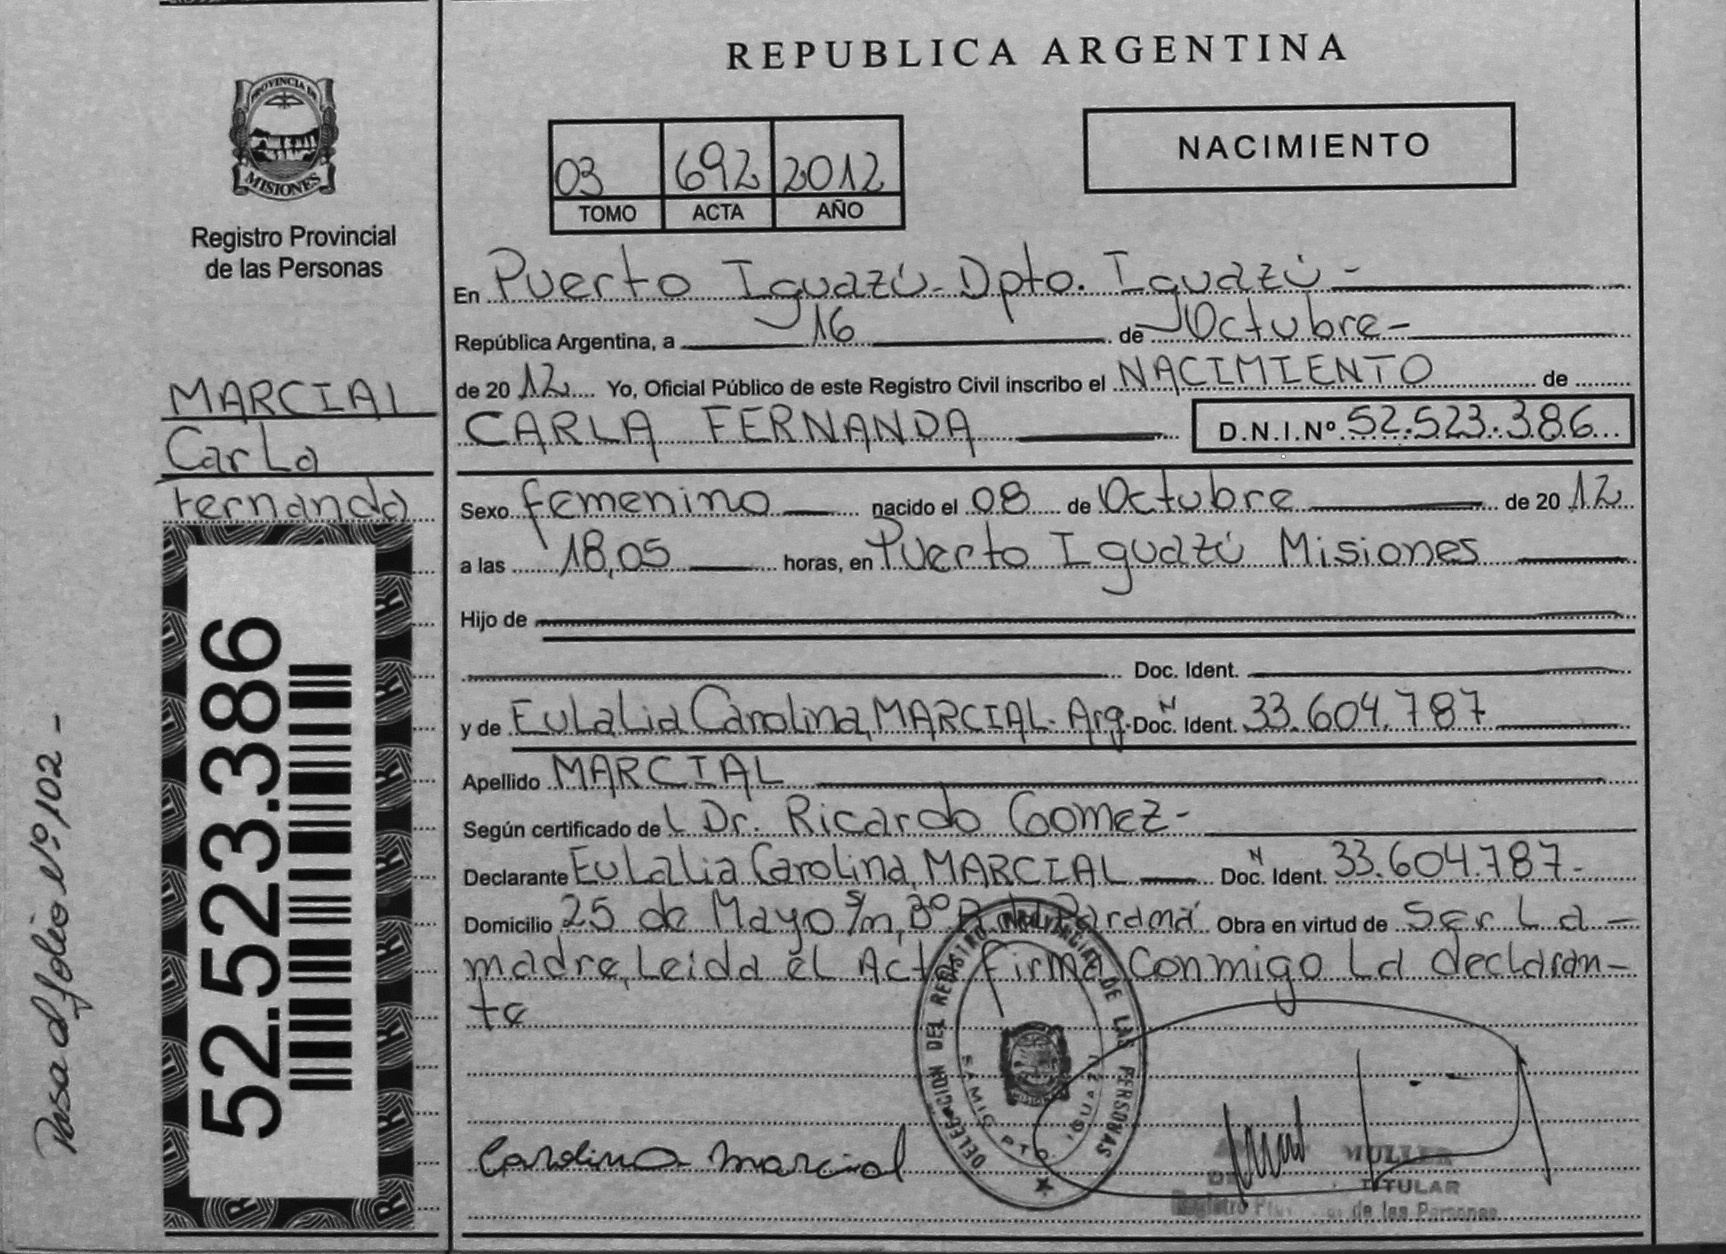 REPUBLICA ARGENTINA
PROVINCIA DE
MISIONES
Registro Provincial
de las Personas
03 692 2012
TOMO ACTA AÑO
NACIMIENTO
En Puerto Iguazú - Dpto. Iguazú -
República Argentina, a 16 de Octubre -
de 20 12 Yo, Oficial Público de este Registro Civil inscribo el NACIMIENTO de
CARLA FERNANDA D.N.I.Nº 52.523.386
MARCIAL
Carla
Fernanda
Sexo femenino nacido el 08 de Octubre de 20 12
a las 18,05 horas, en Puerto Iguazú Misiones
Hijo de
Doc. Ident.
y de Eulalia Carolina, MARCIAL - Arg. Doc. N Ident. 33.604.787
Apellido MARCIAL
Según certificado de l Dr. Ricardo Gomez -
Declarante Eulalia Carolina, MARCIAL Doc. N Ident. 33.604.787 -
Domicilio 25 de Mayo s/n, Bº Paraná Obra en virtud de Ser La -
madre, Leida el Acta firma Conmigo La declaran-
te
52.523.386
Pasa al folio Nº 102 -
DELEGACION DEL REGISTRO PROVINCIAL DE LAS PERSONAS
PTO. IGUAZU
Carolina Marcial
MULLER
TITULAR
Registro de las Personas